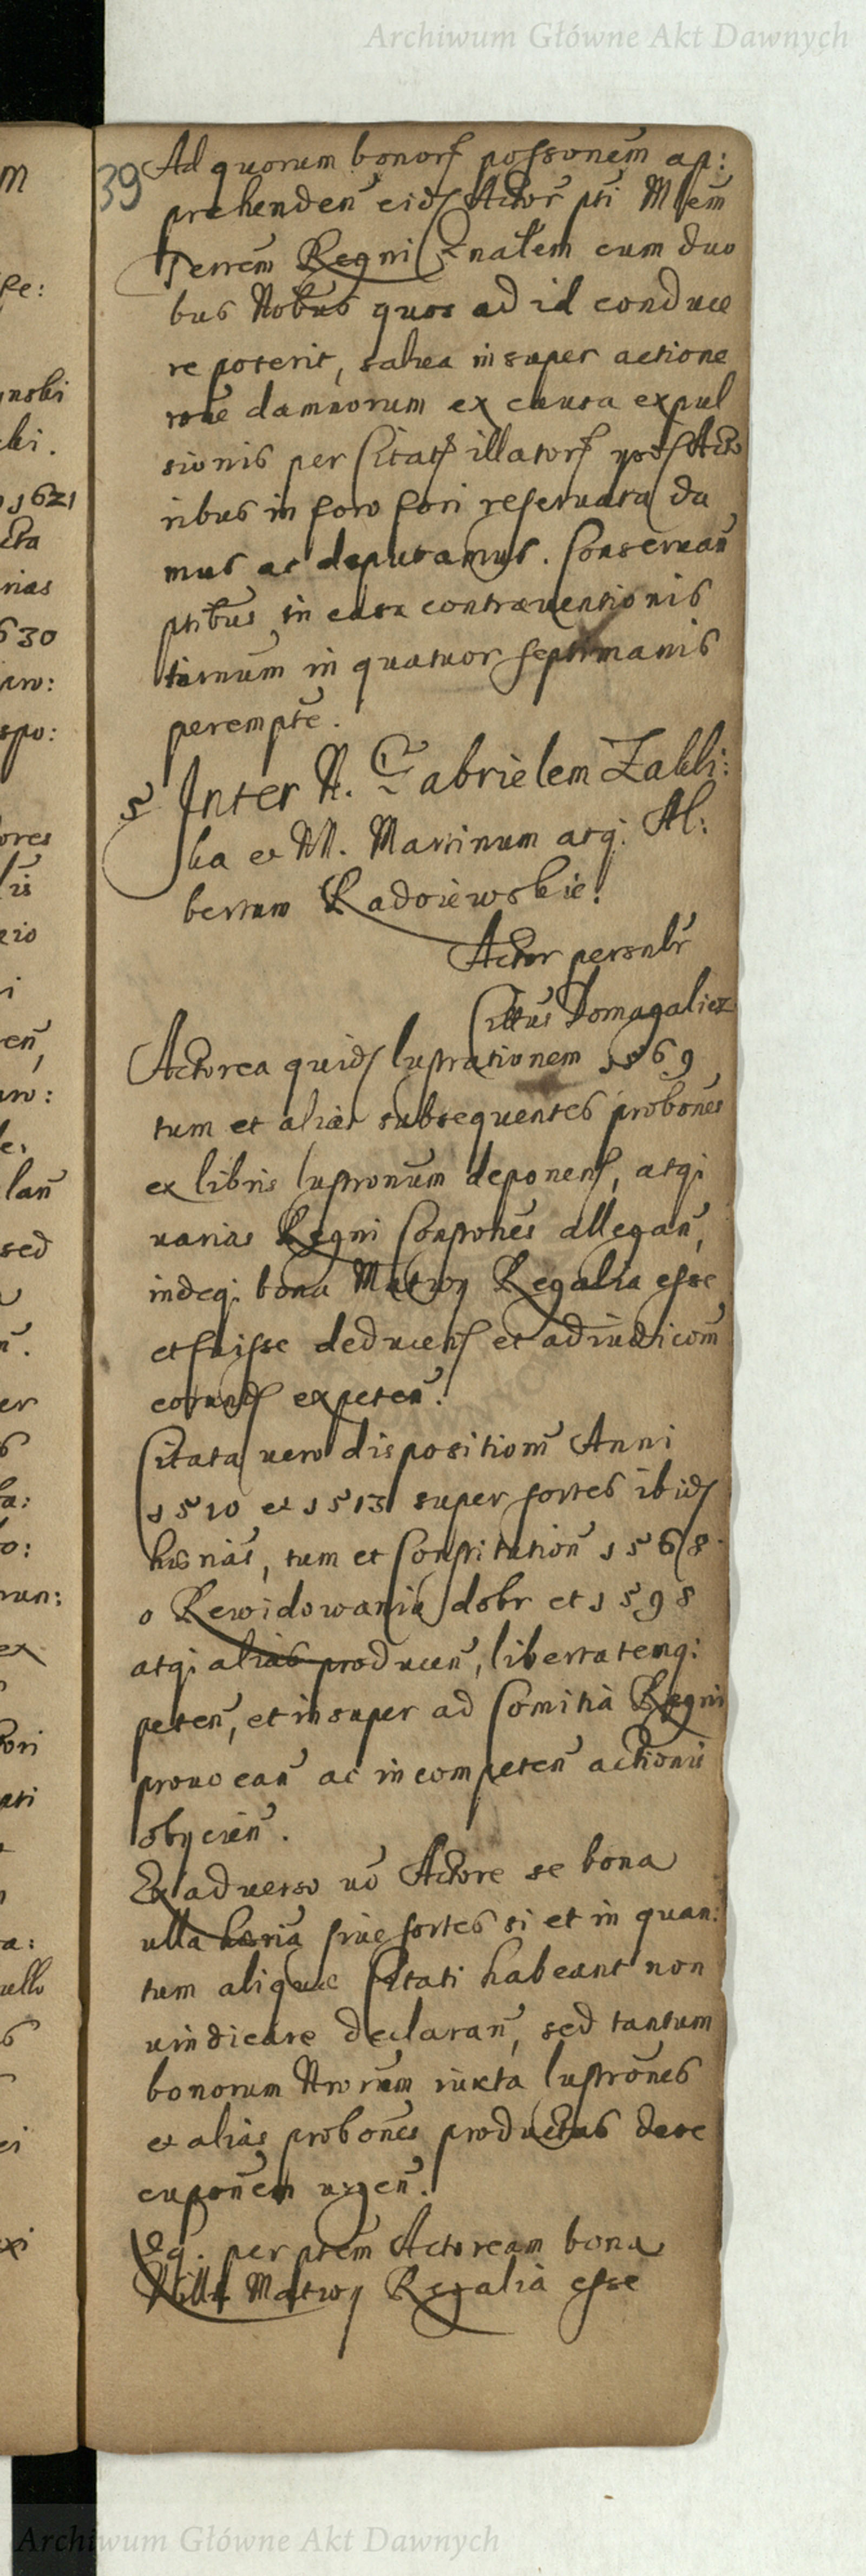 Archiwum Główne Akt Dawnych
39
Ad quorum bonor possonem ap:
prehenden eid Actor pti Mlem
Terrem Regni Gnalem cum duo
bus Nobus quos ad id conduce
re poterit, salua insuper actione
rone damnorum ex causa expul
sionis per Citat illator Acto
ribus in foro fori reseruata da
mus ac deputamus. Conseruan
ptibus in casu contrauentionis
ternum in quatuor septimanis
perempte.
5 Inter N. Gabrielem Zabli:
ka et NN. Martinum atq: Al:
bertum Radoiewskie.
Actor personlr
Cittus Domagalicz
Actorea quid lustrationem 1569
tum et alias subsequentes probones
ex libris lustronum deponen, atq:
varias Regni Constones allegan,
indeq: bona Matwy Regalia esse
et fuisse deducen et adiudicom
eorund expeten.
Citata vero dispositiom Anni
1510 et 1513 super sortes ibid
hrias, tum et Constitution 1568
o Rewidowaniu dobr et 1598
atq: alias producen, libertatemq:
peten, et insuper ad Comitia Regni
prouocan ac incompeten actionis
obycien.
Ex aduerso uo Actore se bona
ulla haeria siue sortes si et in quan:
tum aliquae Citati habeant non
uindicare declaran, sed tantum
bonorum Nrorum iuxta lustrones
et alias probones productas
cuponem urgen.
per ptem Actoream bona
Villa Matwy Regalia esse
Archiwum Główne Akt Dawnych